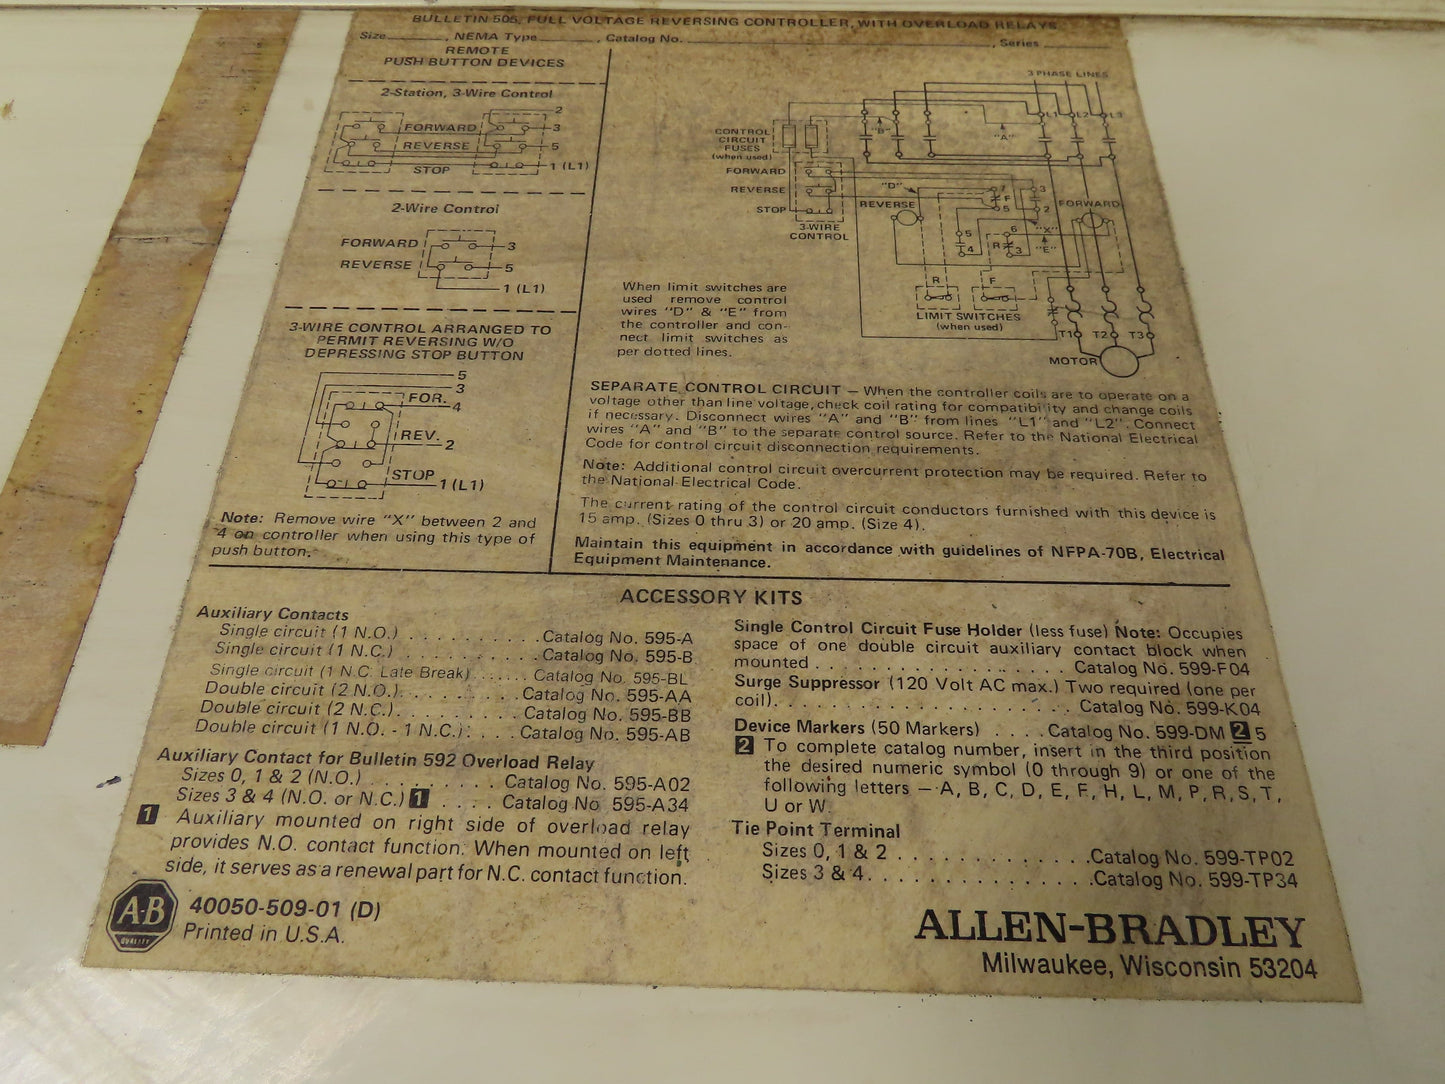 BULLETIN 505, FULL VOLTAGE REVERSING CONTROLLER, WITH OVERLOAD RELAYS
Size , NEMA Type , Catalog No. , Series
REMOTE
PUSH BUTTON DEVICES
2-Station, 3-Wire Control
2
FORWARD 3
REVERSE 5
STOP 1 (L1)
2-Wire Control
FORWARD 3
REVERSE 5
1 (L1)
3-WIRE CONTROL ARRANGED TO
PERMIT REVERSING W/O
DEPRESSING STOP BUTTON
5
3
FOR. 4
REV. 2
STOP 1 (L1)
Note: Remove wire "X" between 2 and
4 on controller when using this type of
push button.
3 PHASE LINES
L1 L2 L3
"B" "A"
CONTROL
CIRCUIT
FUSES
(when used)
FORWARD
REVERSE
STOP
3-WIRE
CONTROL
"D" 7 F 3
REVERSE 5 2 FORWARD
5 6 "X"
4 R 3 "E"
R F
LIMIT SWITCHES
(when used)
T1 T2 T3
MOTOR
When limit switches are
used remove control
wires "D" & "E" from
the controller and con-
nect limit switches as
per dotted lines.
SEPARATE CONTROL CIRCUIT — When the controller coils are to operate on a
voltage other than line voltage, check coil rating for compatibility and change coils
if necessary. Disconnect wires "A" and "B" from lines "L1" and "L2". Connect
wires "A" and "B" to the separate control source. Refer to the National Electrical
Code for control circuit disconnection requirements.
Note: Additional control circuit overcurrent protection may be required. Refer to
the National Electrical Code.
The current rating of the control circuit conductors furnished with this device is
15 amp. (Sizes 0 thru 3) or 20 amp. (Size 4).
Maintain this equipment in accordance with guidelines of NFPA-70B, Electrical
Equipment Maintenance.
ACCESSORY KITS
Auxiliary Contacts
Single circuit (1 N.O.) . . . . . . . . . . Catalog No. 595-A
Single circuit (1 N.C.) . . . . . . . . . . Catalog No. 595-B
Single circuit (1 N.C. Late Break) . . . . . . Catalog No. 595-BL
Double circuit (2 N.O.). . . . . . . . . Catalog No. 595-AA
Double circuit (2 N.C.). . . . . . . . . Catalog No. 595-BB
Double circuit (1 N.O. - 1 N.C.). . . . Catalog No. 595-AB
Auxiliary Contact for Bulletin 592 Overload Relay
Sizes 0, 1 & 2 (N.O.) . . . . . . . . Catalog No. 595-A02
Sizes 3 & 4 (N.O. or N.C.) 1 . . . . Catalog No 595-A34
1 Auxiliary mounted on right side of overload relay
provides N.O. contact function. When mounted on left
side, it serves as a renewal part for N.C. contact function.
A-B
QUALITY
40050-509-01 (D)
Printed in U.S.A.
Single Control Circuit Fuse Holder (less fuse) Note: Occupies
space of one double circuit auxiliary contact block when
mounted . . . . . . . . . . . . . . . . . . Catalog No. 599-F04
Surge Suppressor (120 Volt AC max.) Two required (one per
coil). . . . . . . . . . . . . . . . . . . . . Catalog No. 599-K04
Device Markers (50 Markers) . . . . Catalog No. 599-DM 2 5
2 To complete catalog number, insert in the third position
the desired numeric symbol (0 through 9) or one of the
following letters — A, B, C, D, E, F, H, L, M, P, R, S, T,
U or W.
Tie Point Terminal
Sizes 0, 1 & 2 . . . . . . . . . . . . . . Catalog No. 599-TP02
Sizes 3 & 4. . . . . . . . . . . . . . . . Catalog No. 599-TP34
ALLEN-BRADLEY
Milwaukee, Wisconsin 53204